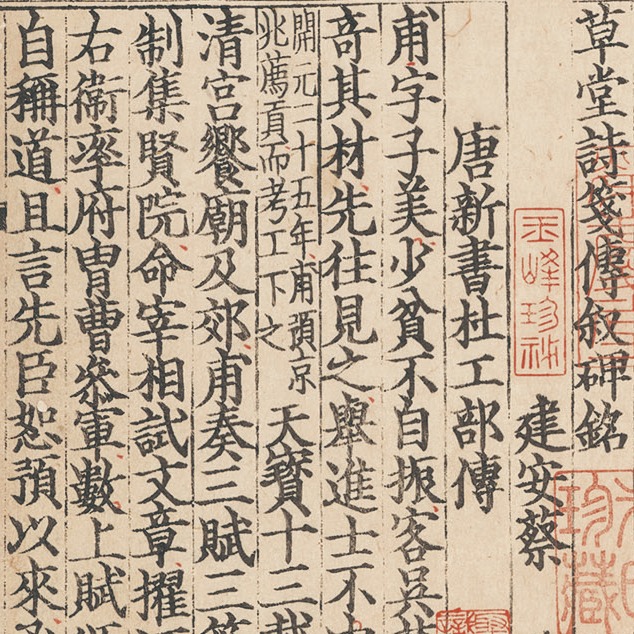 草堂詩箋傳叙碑銘
建安蔡
唐新書杜工部傳
甫字子美少貧不自振客吳
奇其材先往見之舉進士不
開元二十五年甫預京
兆薦貢而考工下之
天寶十三載
清宮饗廟及郊甫奏三賦三
制集賢院命宰相試文章擢
右衞率府胄曹叅軍數上賦
自稱道且言先臣恕預以來
玉峰珍秘
珍藏